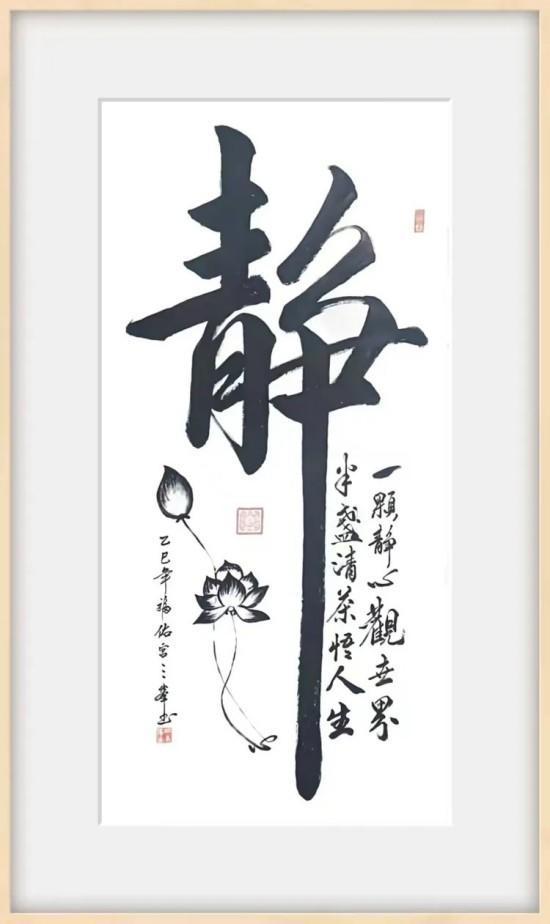 静
一顆静心觀世界
半盞清茶悟人生
乙巳年福佑宮三峯书